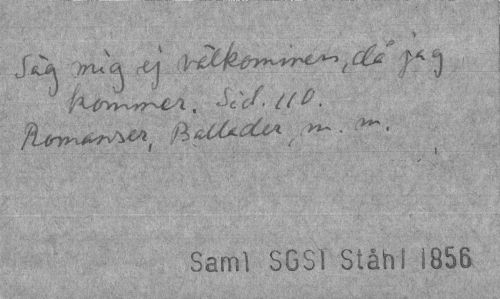 Säg mig ej välkommen, då jag
kommer. Sid. 110.
Romanser, Ballader, m. m.
Saml SGS1 Ståhl 1856